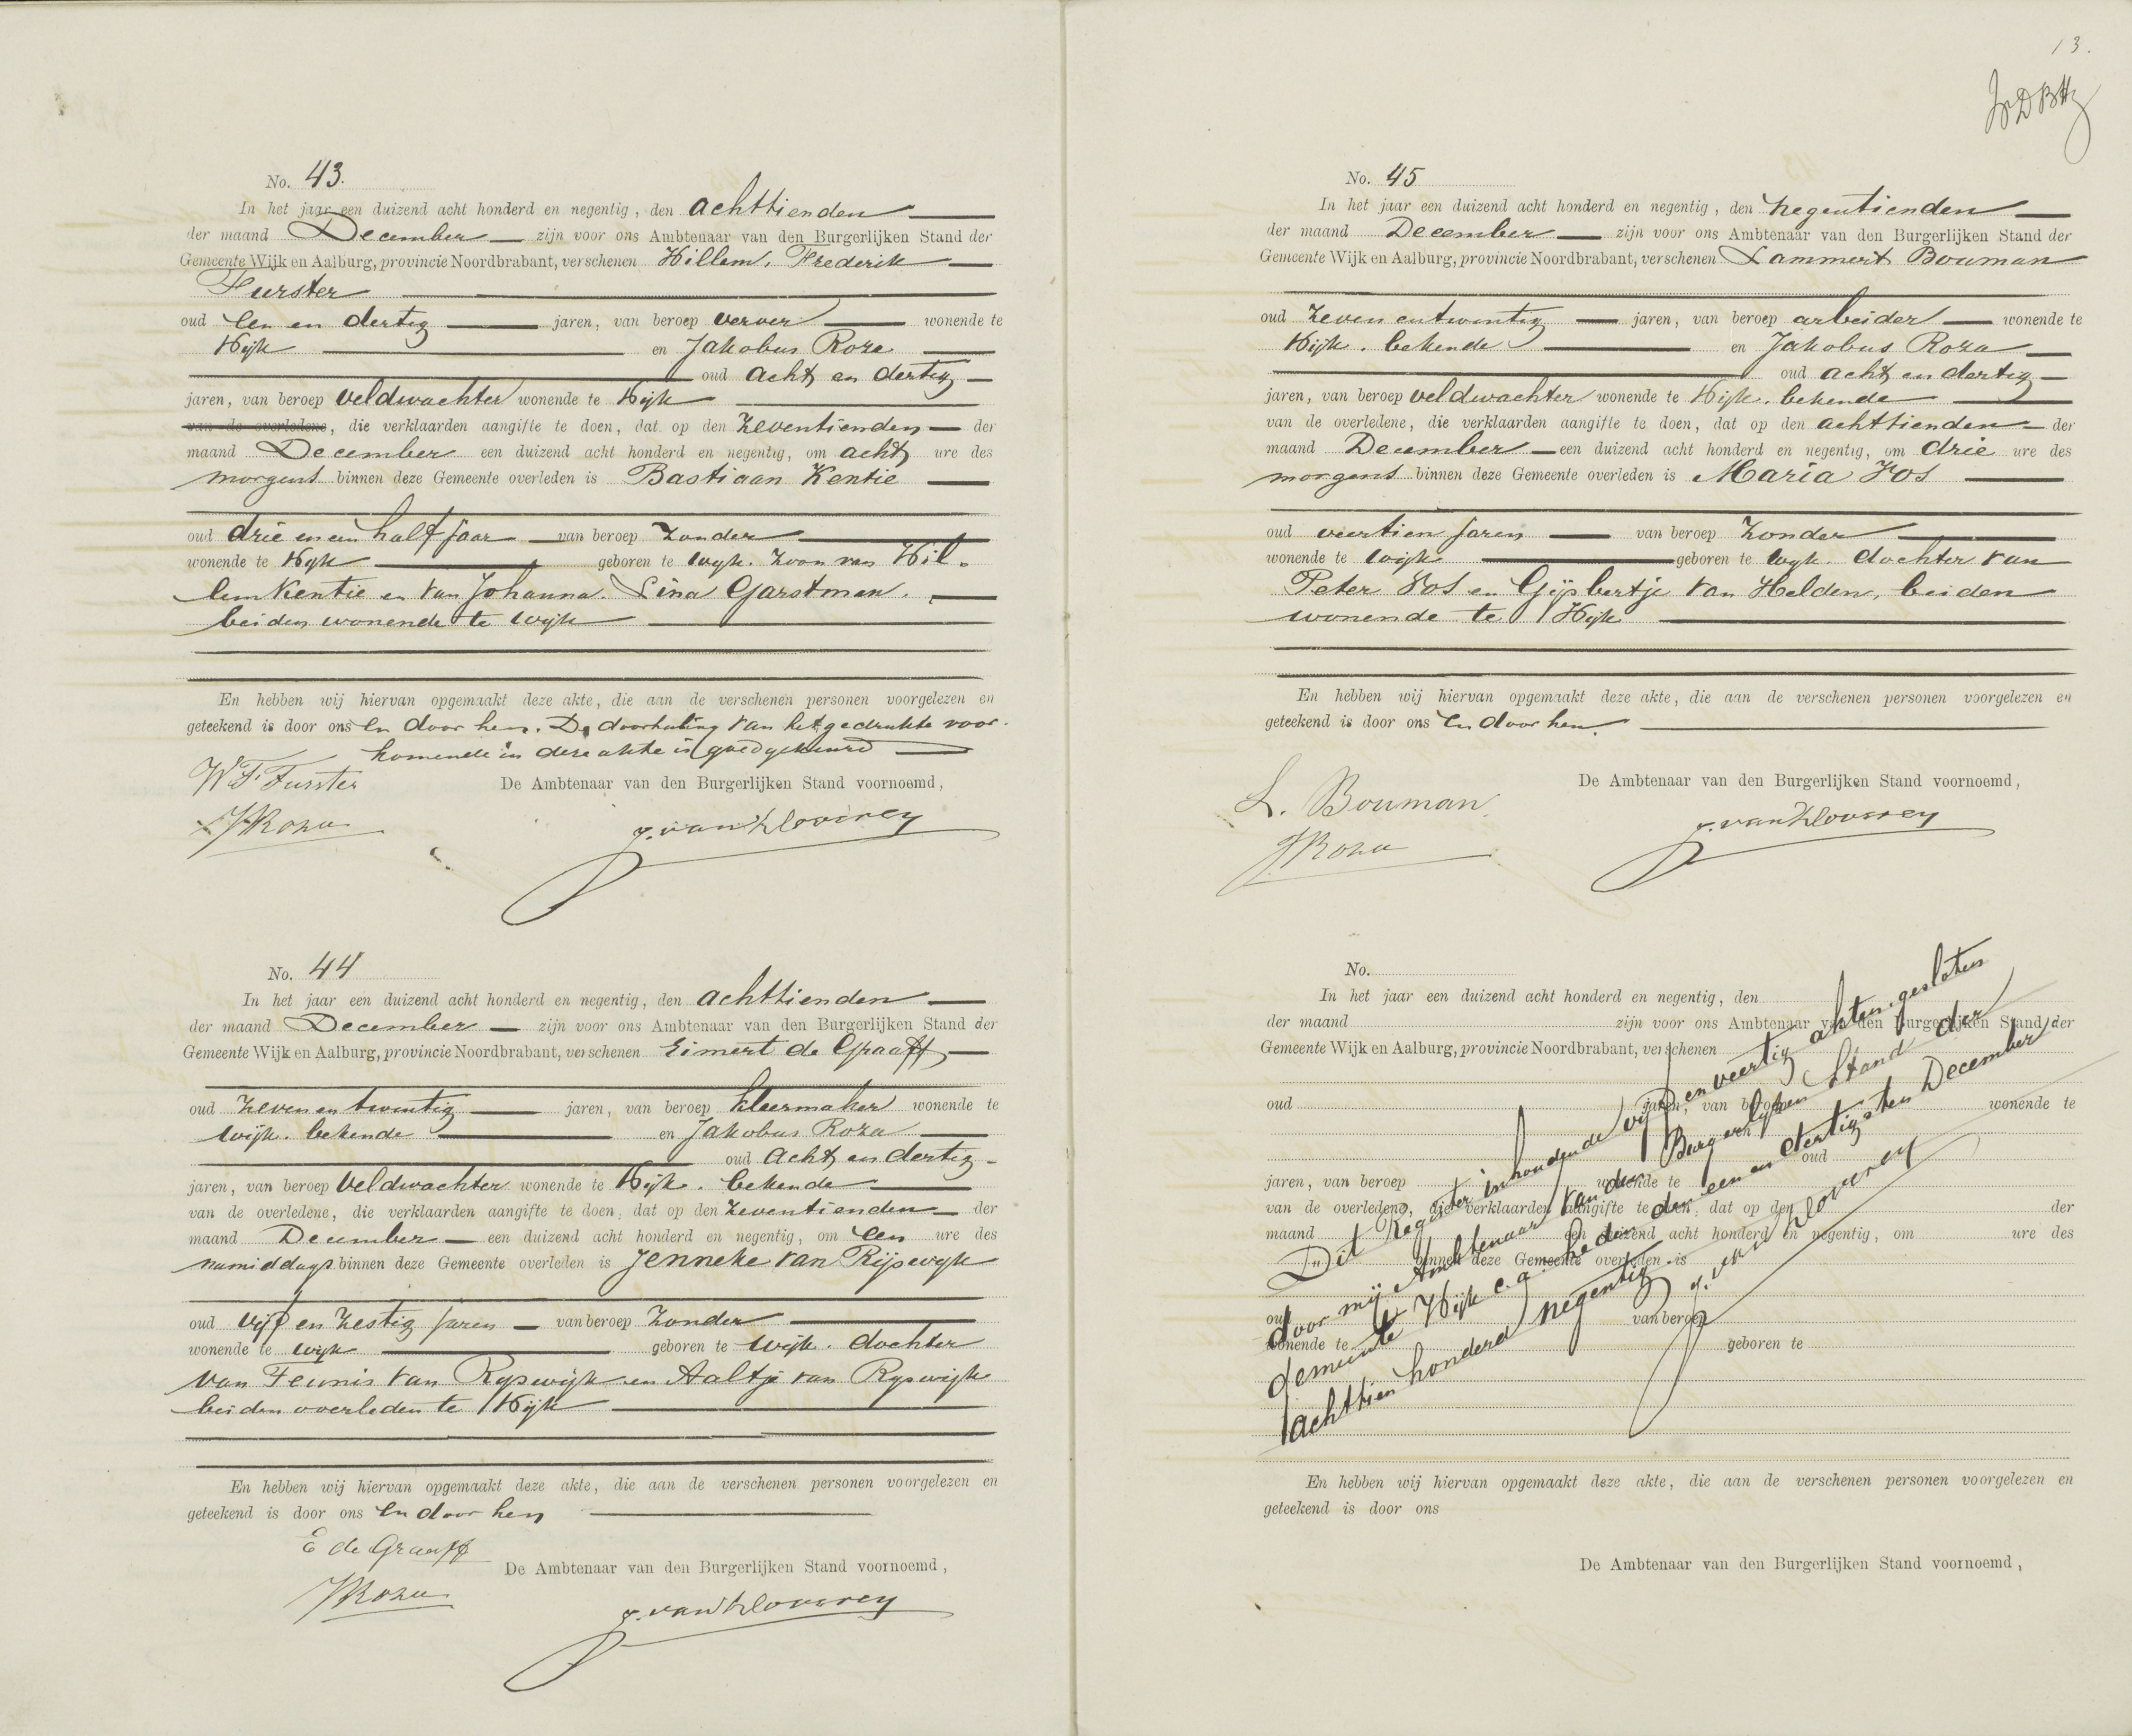 No. 43.
In het jaar een duizend acht honderd en negentig, den achttienden
der maand December zijn voor ons Ambtenaar van den Burgerlijken Stand der
Gemeente Wijk en Aalburg, provincie Noordbrabant, verschenen Willem, Frederik
Furster
oud een en dertig jaren, van beroep verver wonende te
Wijk en Jakobus Roza
oud acht en dertig
jaren, van beroep veldwachter wonende te Wijk
van de overledene, die verklaarden aangifte te doen, dat op den zeventienden der
maand December een duizend acht honderd en negentig, om acht ure des
morgens binnen deze Gemeente overleden is Bastiaan Kentie
oud drie en een half jaar van beroep zonder
wonende te Wijk geboren te wijk. zoon van Wil-
lem Kentie en van Johanna. Lina Garstman.
beiden wonende te wijk
En hebben wij hiervan opgemaakt deze akte, die aan de verschenen personen voorgelezen en
geteekend is door ons en door hen. De doorhaling van het gedrukte voor-
komende in deze akte is goedgekeurd
W F Furster
De Ambtenaar van den Burgerlijken Stand voornoemd,
J Roza
No. 44
In het jaar een duizend acht honderd en negentig, den achttienden
der maand December zijn voor ons Ambtenaar van den Burgerlijken Stand der
Gemeente Wijk en Aalburg, provincie Noordbrabant, verschenen Eimert de Graaff
oud zeven en twintig jaren, van beroep kleermaker wonende te
wijk. bekende en Jakobus Roza
oud acht en dertig
jaren, van beroep veldwachter wonende te Wijk. bekende
van de overledene, die verklaarden aangifte te doen, dat op den zeventienden der
maand December een duizend acht honderd en negentig, om een ure des
namiddags binnen deze Gemeente overleden is Jenneke van Rijswijk
oud vijf en zestig jaren van beroep zonder
wonende te wijk geboren te wijk. dochter
van Teunis van Rijswijk en Aaltje van Rijswijk
beiden overleden te Wijk
En hebben wij hiervan opgemaakt deze akte, die aan de verschenen personen voorgelezen en
geteekend is door ons en door hen
E de Graaff
De Ambtenaar van den Burgerlijken Stand voornoemd,
J Roza
13.
No. 45
In het jaar een duizend acht honderd en negentig, den negentienden
der maand December zijn voor ons Ambtenaar van den Burgerlijken Stand der
Gemeente Wijk en Aalburg, provincie Noordbrabant, verschenen Lammert Bouman
oud zeven en twintig jaren, van beroep arbeider wonende te
Wijk. bekende en Jakobus Roza
oud acht en dertig
jaren, van beroep veldwachter wonende te Wijk. bekende
van de overledene, die verklaarden aangifte te doen, dat op den achttienden der
maand December een duizend acht honderd en negentig, om drie ure des
morgens binnen deze Gemeente overleden is Maria Vos
oud veertien jaren van beroep zonder
wonende te wijk geboren te wijk. dochter van
Peter Vos en Gijsbertje van Helden, beiden
wonende te Wijk
En hebben wij hiervan opgemaakt deze akte, die aan de verschenen personen voorgelezen en
geteekend is door ons en door hen.
De Ambtenaar van den Burgerlijken Stand voornoemd,
L. Bouman
J Roza
No.
In het jaar een duizend acht honderd en negentig, den
der maand zijn voor ons Ambtenaar van den Burgerlijken Stand der
Gemeente Wijk en Aalburg, provincie Noordbrabant, verschenen
oud jaren, van beroep wonende te
en
oud
jaren, van beroep wonende te
van de overledene, die verklaarden aangifte te doen, dat op den der
maand een duizend acht honderd en negentig, om ure des
binnen deze Gemeente overleden is
oud van beroep
wonende te geboren te
Dit Register inhoudende vijf en veertig akten gesloten
door mij Ambtenaar van den Burgerlijken Stand der
gemeente Wijk c.a. heden den een en dertigsten December
achttien honderd negentig
En hebben wij hiervan opgemaakt deze akte, die aan de verschenen personen voorgelezen en
geteekend is door ons
De Ambtenaar van den Burgerlijken Stand voornoemd,